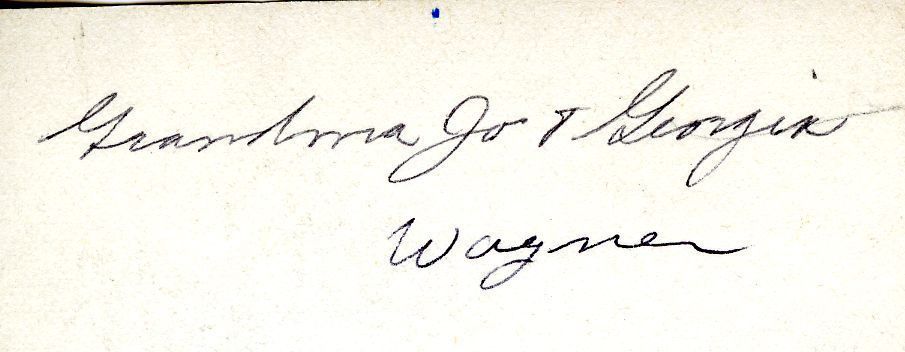 Grandma Jo & Georgia
Wagner